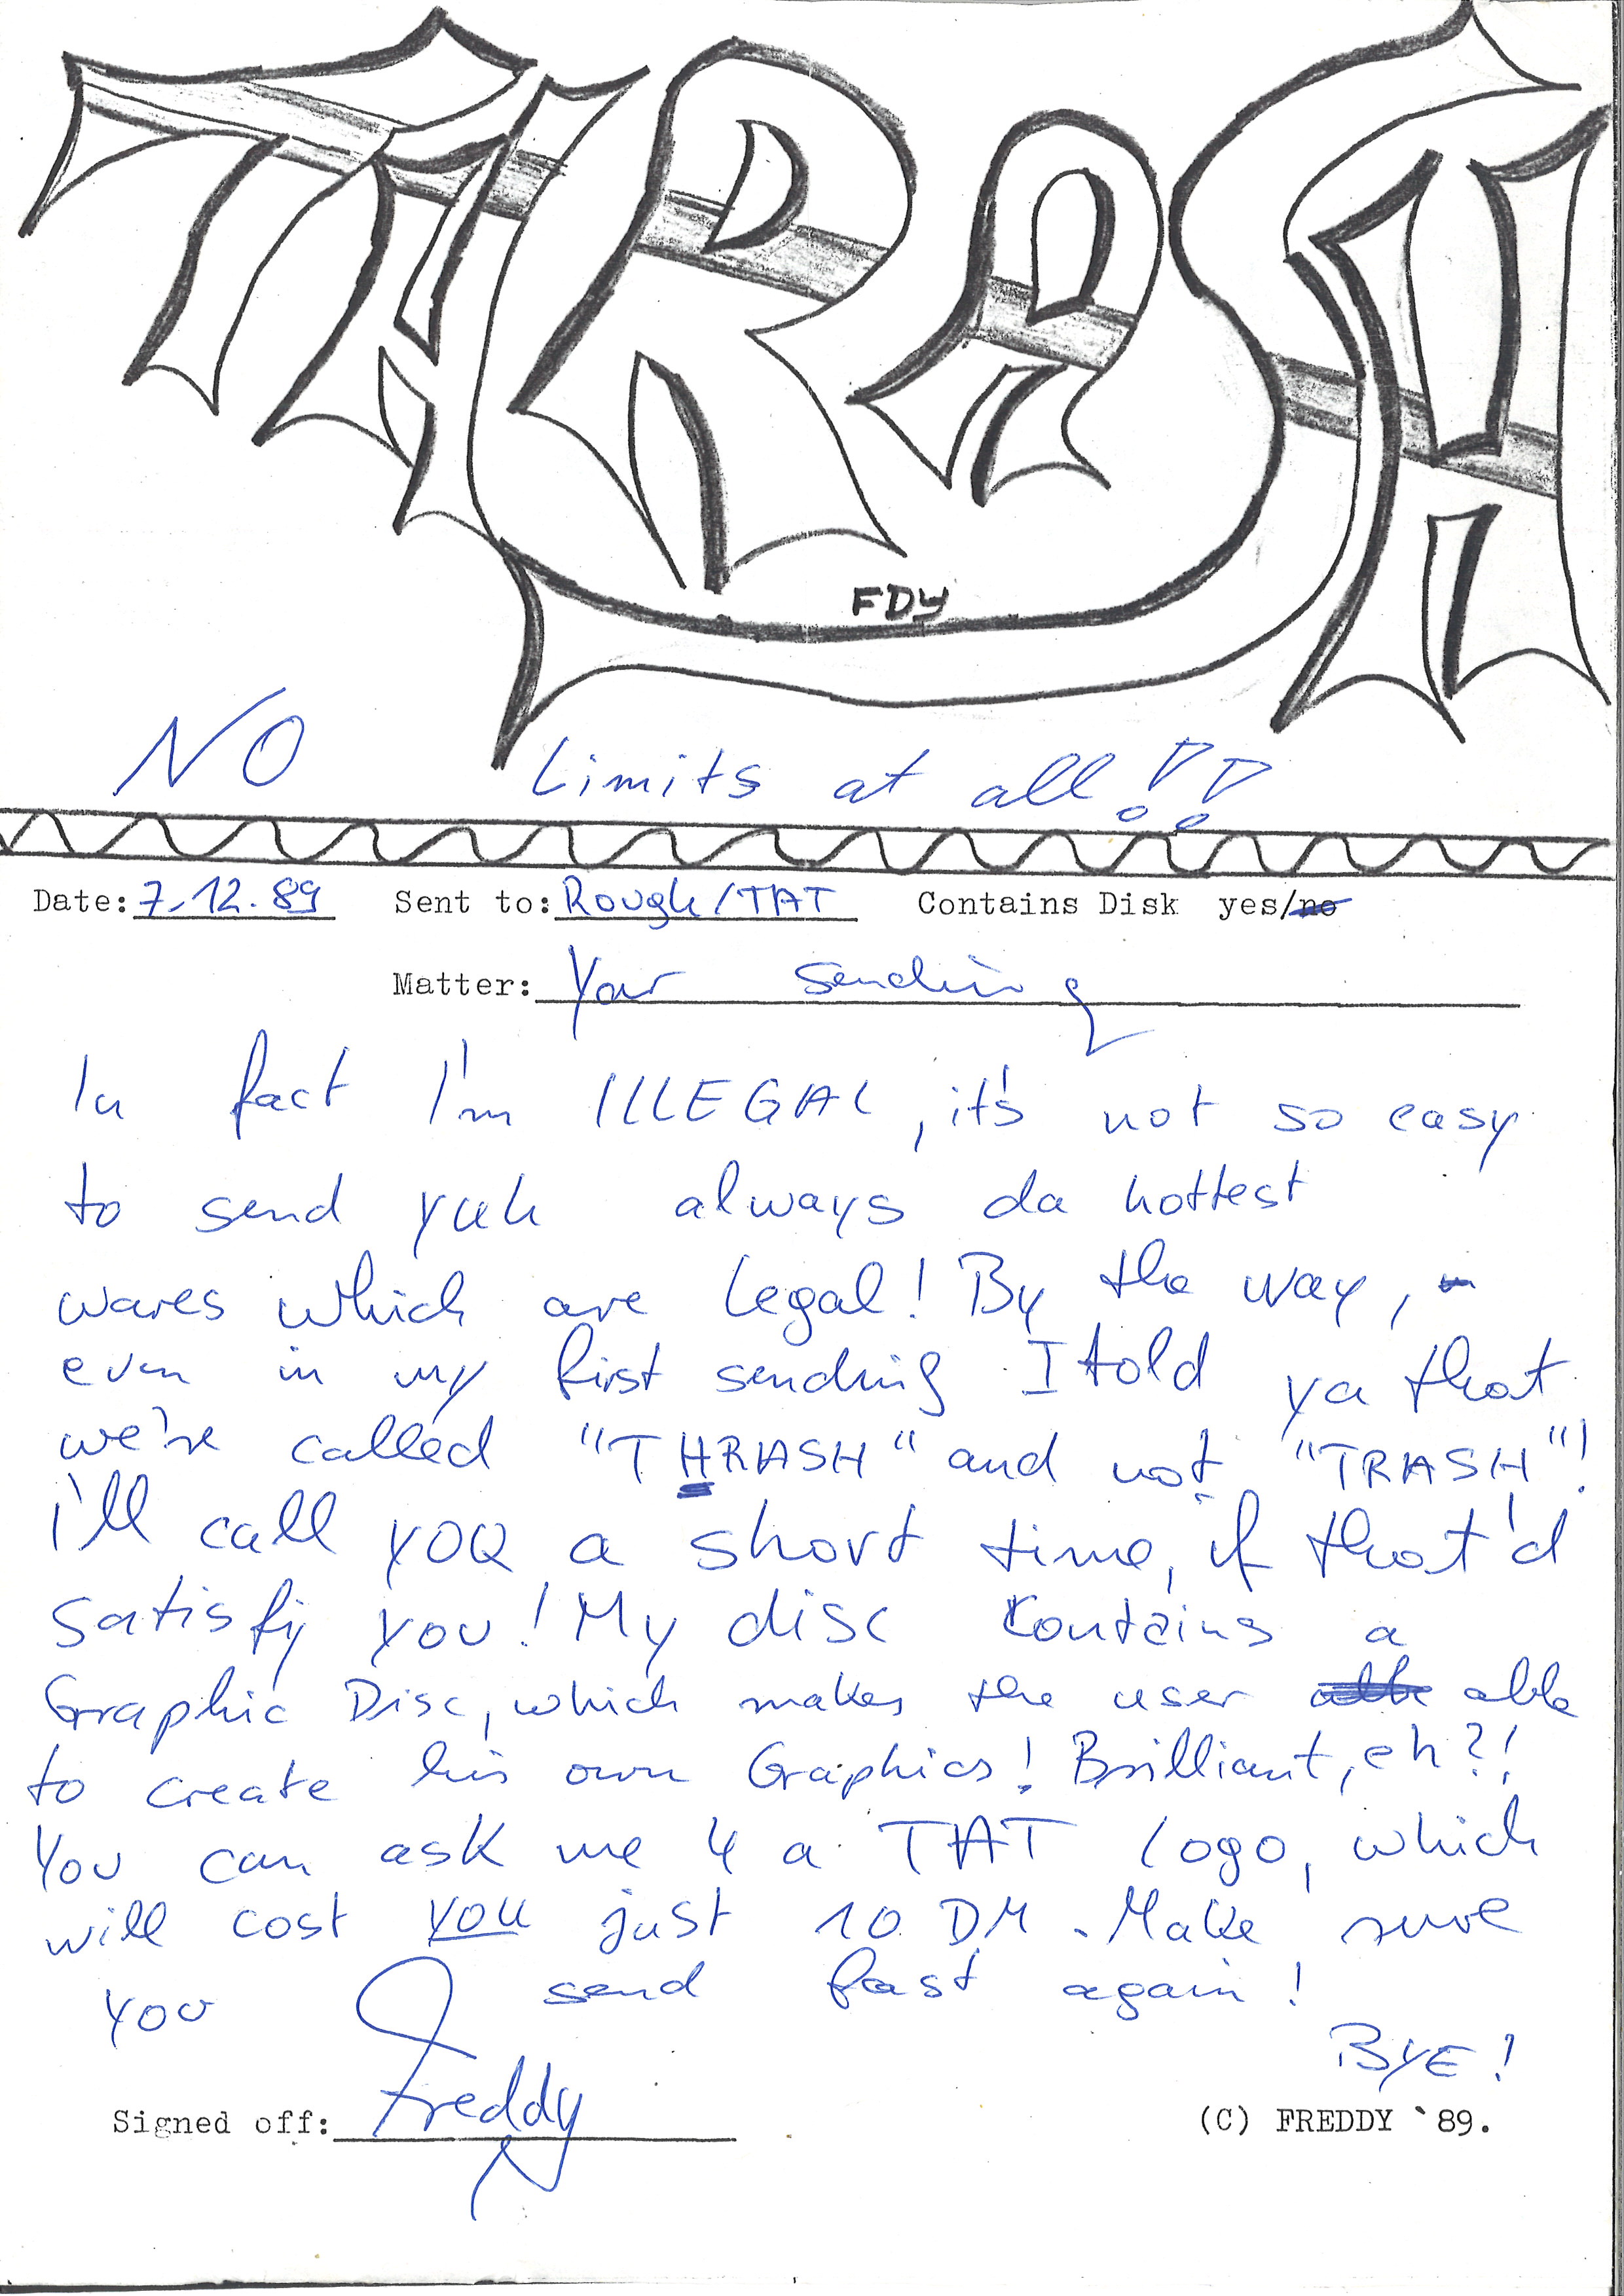 THRASH
FDY
NO Limits at all!!
Date: 7.12.89 Sent to: Rough/TAT Contains Disk yes/no
Matter: Your sending
In fact I'm ILLEGAL, it's not so easy
to send yuh always da hottest
wares which are legal! By the way,
even in my first sending I told ya that
we're called "THRASH" and not "TRASH"!
i'll call YOU a short time, if that'd
satisfy you! My disc contains a
Graphic Disc, which makes the user able
to create his own Graphics! Brilliant, eh?!
You can ask me 4 a TAT logo, which
will cost you just 10 DM. Make sure
you send fast again!
BYE!
Signed off: Freddy
(C) FREDDY `89.